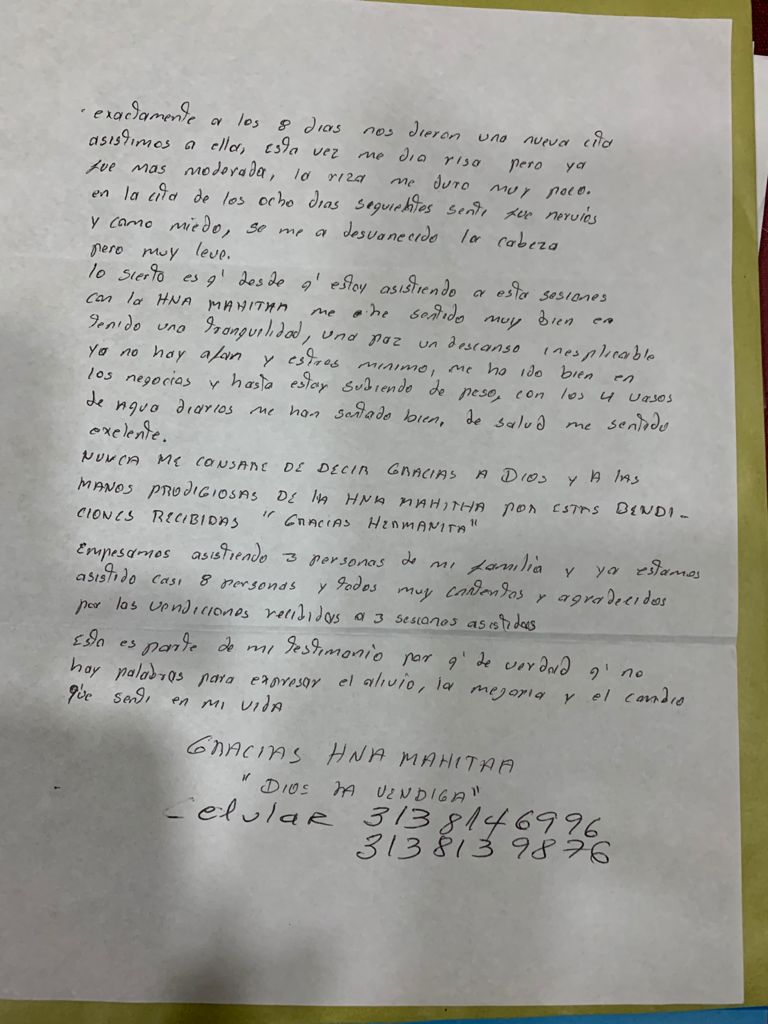 exactamente a los 8 dias nos dieron una nueva cita
asistimos a ella, Esta vez me dia risa pero ya
fue mas moderada, la riza me duro muy poco.
en la cita de los ocho dias seguientes senti fue nervios
y como miedo, se me a desvanecido la cabeza
pero muy leve.
lo sierto es q' desde q' estoy asistiendo a esta sesiones
con la HNA MAHITAA me he sentido muy bien en
tenido una tranquilidad, una paz un descanso inesplicable
ya no hay afan y estres minimo, me ha ido bien en
los negocios y hasta estoy subiendo de peso, con los 4 vasos
de agua diarios me han sentado bien, de salud me sentido
exelente.
NUNCA ME CANSARE DE DECIR GRACIAS A DIOS Y A LAS
MANOS PRODIGIOSAS DE LA HNA MAHITHA POR ESTAS BENDI-
CIONES RECIBIDAS "GRACIAS HERMANITA"
Empesamos asistiendo 3 personas de mi familia y ya estamos
asistido casi 8 personas y todos muy contentos y agradecidos
por las vendiciones recibidas a 3 sesiones asistidas
Esta es parte de mi testimonio por q' de verdad q' no
hay palabras para expresar el alivio, la mejoria y el cambio
que senti en mi vida
GRACIAS HNA MAHITAA
"DIOS LA VENDIGA"
Celular 3138146996
3138139876